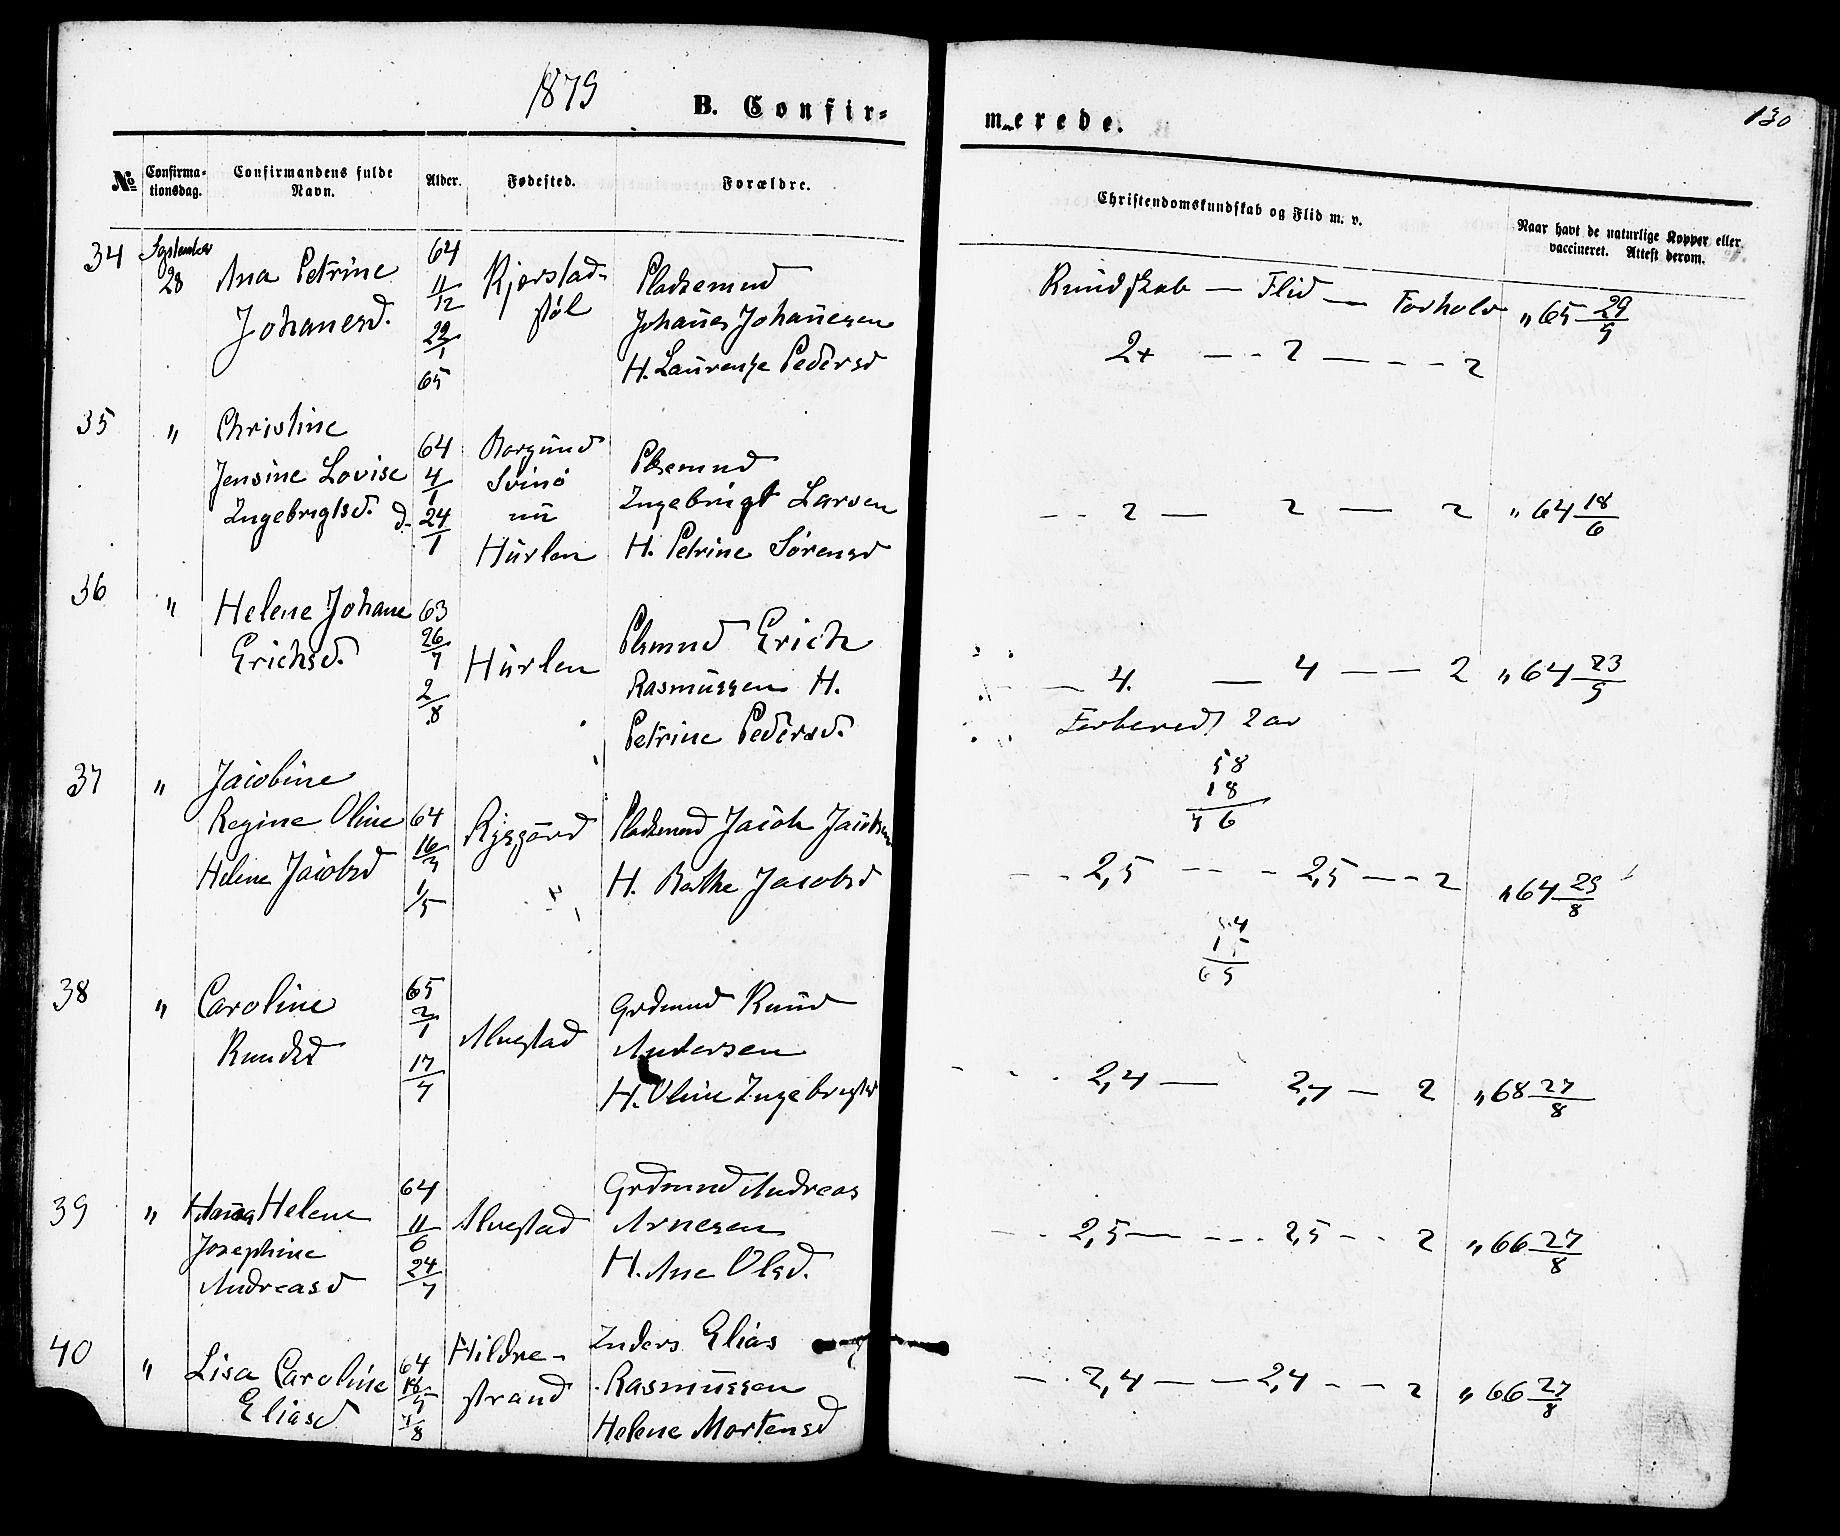 1879
B. Confir-
merede.
130
No
Confirma-
tionsdag.
Confirmandens fulde
Navn.
Alder.
Fødested.
Forældre.
Christendomskundskab og Flid m. v.
Naar havt de naturlige Kopper eller
vaccineret. Attest derom.
34
September
28
Ana Petrine
Johanesd.
64
11/12
22/1
65
Kjerstad-
støl
Pladsemnd
Johanes Johanesen
H. Laurense Pedersd
Kundskab — Flid — Forhold
2+ — - 2 — - - 2
" 65 29/9
35
"
Christine
Jensine Lovise
Ingebrigtsd.
64
4/1
d. 24/1
Borgund
Svinø
nu
Hurlen
Plsemnd
Ingebrigt Larsen
H. Petrine Sørensd
- - 2 — 2 — 2
" 64 18/6
36
"
Helene Johane
Erichsd.
63
26/7
2/8
Hurlen
Plsmnd Erich
Rasmussen H.
Petrine Pedersd.
— 4. — 4 — — 2
Forbered 2 ar
" 64 23/9
58
18
76
37
"
Jacobine
Regine Oline
Helene Jacobsd
64
1/5
Rysgård
Pladsemnd Jacob Jacobsen
H. Rathe Jacobsd
- - 2,5 - - - 2,5 — - 2
" 64 29/8
38
"
Caroline
Knudsd
65
2/1
17/7
Alvestad
Grdmnd Knud
Andersen
H. Oline Ingebrigtsd
- - - 2,4 — 2,4 — 2
" 68 27/8
39
"
Hansa Helene
Josephine
Andreasd
64
11/6
24/7
Alvestad
Grdmnd Andreas
Arnesen
H. Ane Olsd.
- - 2,5 — - - - 2,5 - - 2
" 66 27/8
40
"
Lisa Caroline
Eliasd
64
18/5
7/8
Hildre-
strand
Inders Elias
Rasmussen
Helene Mortensd
— - 2,4 — — 2,4 - - 2
" 66 27/8